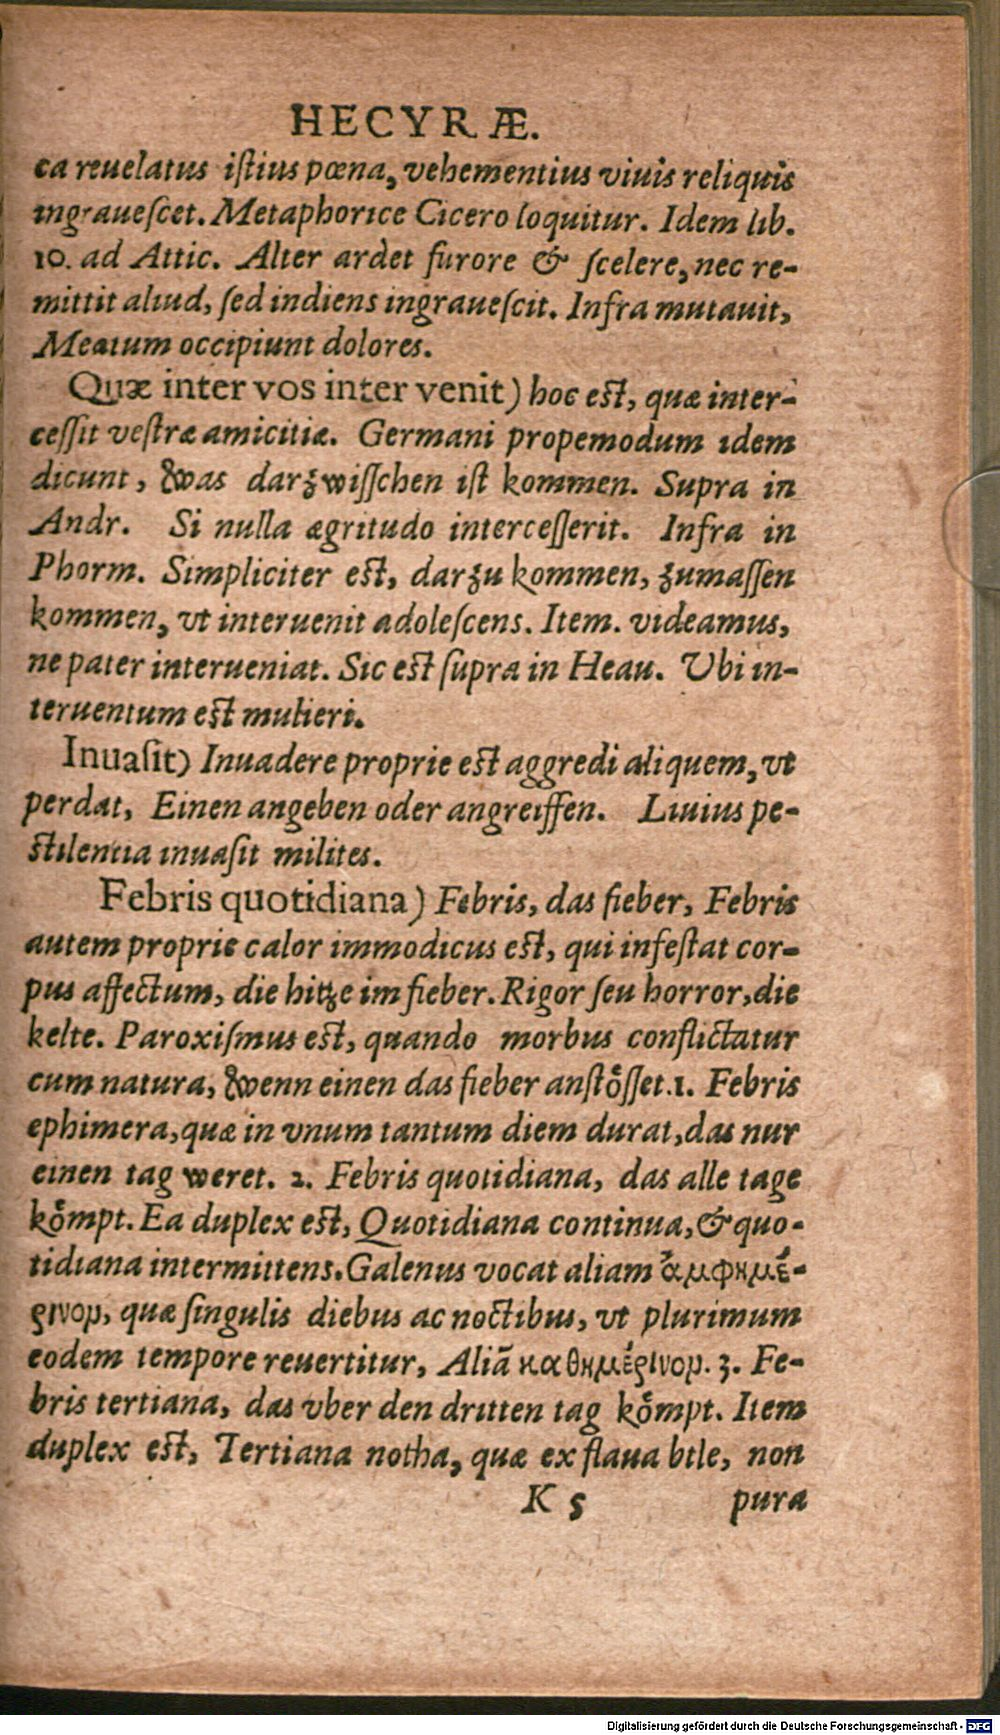 HECYRÆ.
ca reuelatus iſtius pœna, vehementius viuis reliquis
ingraueſcet. Metaphorice Cicero loquitur. Idem lib.
10. ad Attic. Alter ardet furore & ſcelere, nec re-
mittit aliud, ſed indiens ingraueſcit. Infra mutauit,
Meatum occipiunt dolores.
Quæ inter vos inter venit) hoc eſt, quæ inter-
ceſſit veſtræ amicitiæ. Germani propemodum idem
dicunt, was darzwiſſchen iſt kommen. Supra in
Andr. Si nulla ægritudo interceſſerit. Infra in
Phorm. Simpliciter eſt, darzu kommen, zumaſſen
kommen, vt interuenit adoleſcens. Item. videamus,
ne pater interueniat. Sic eſt ſupra in Heau. Vbi in-
teruentum eſt mulieri.
Inuaſit) Inuadere proprie eſt aggredi aliquem, vt
perdat, Einen angeben oder angreiffen. Liuius pe-
ſtilentia inuaſit milites.
Febris quotidiana) Febris, das fieber, Febris
autem proprie calor immodicus eſt, qui infeſtat cor-
pus affectum, die hitze im fieber. Rigor ſeu horror, die
kelte. Paroxiſmus eſt, quando morbus conflictatur
cum natura, wenn einen das fieber anſtoͤſſet. 1. Febris
ephimera, quæ in vnum tantum diem durat, das nur
einen tag weret. 2. Febris quotidiana, das alle tage
koͤmpt. Ea duplex eſt, Quotidiana continua, & quo-
tidiana intermittens. Galenus vocat aliam ἀμφημέ-
ρινομ, quæ ſingulis diebus ac noctibus, vt plurimum
eodem tempore reuertitur, Aliã καθημέρινομ. 3. Fe-
bris tertiana, das vber den dritten tag koͤmpt. Item
duplex eſt, Tertiana notha, quæ ex flaua bile, non
K 5 pura
Digitalisierung gefördert durch die Deutsche Forschungsgemeinschaft - DFG